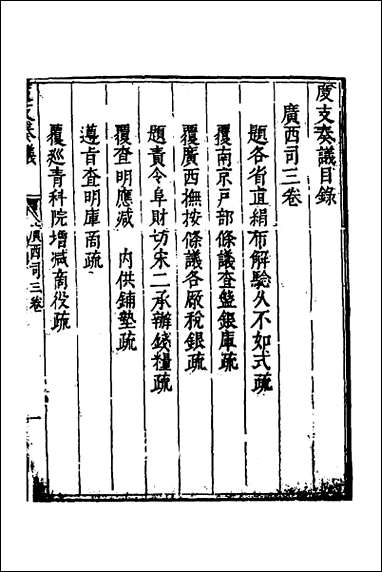 度支奏議目錄
廣西司三卷
題各省直絹布解驗久不如式疏
覆南京戶部條議查盤銀庫疏
覆廣西撫按條議各厰稅銀疏
題責令阜財坊宋二承辦錢糧疏
覆查明應减　內供鋪墊疏
遵旨查明庫啇疏
覆巡青科院增减商役疏
度支奏議
廣西司三卷
一